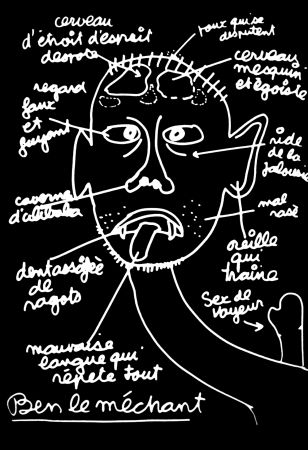 cerveau
d'étroit d'esprit
despote
poux qui se
disputent
cerveau
mesquin
et égoïste
regard
faux
et
fuyant
ride
de la
jalousie
caverne
d'alibaba
mal
rasé
oreille
qui
traine
dent
de
ragots
Sex de
voyeur
mauvaise
langue qui
répète tout
Ben le méchant